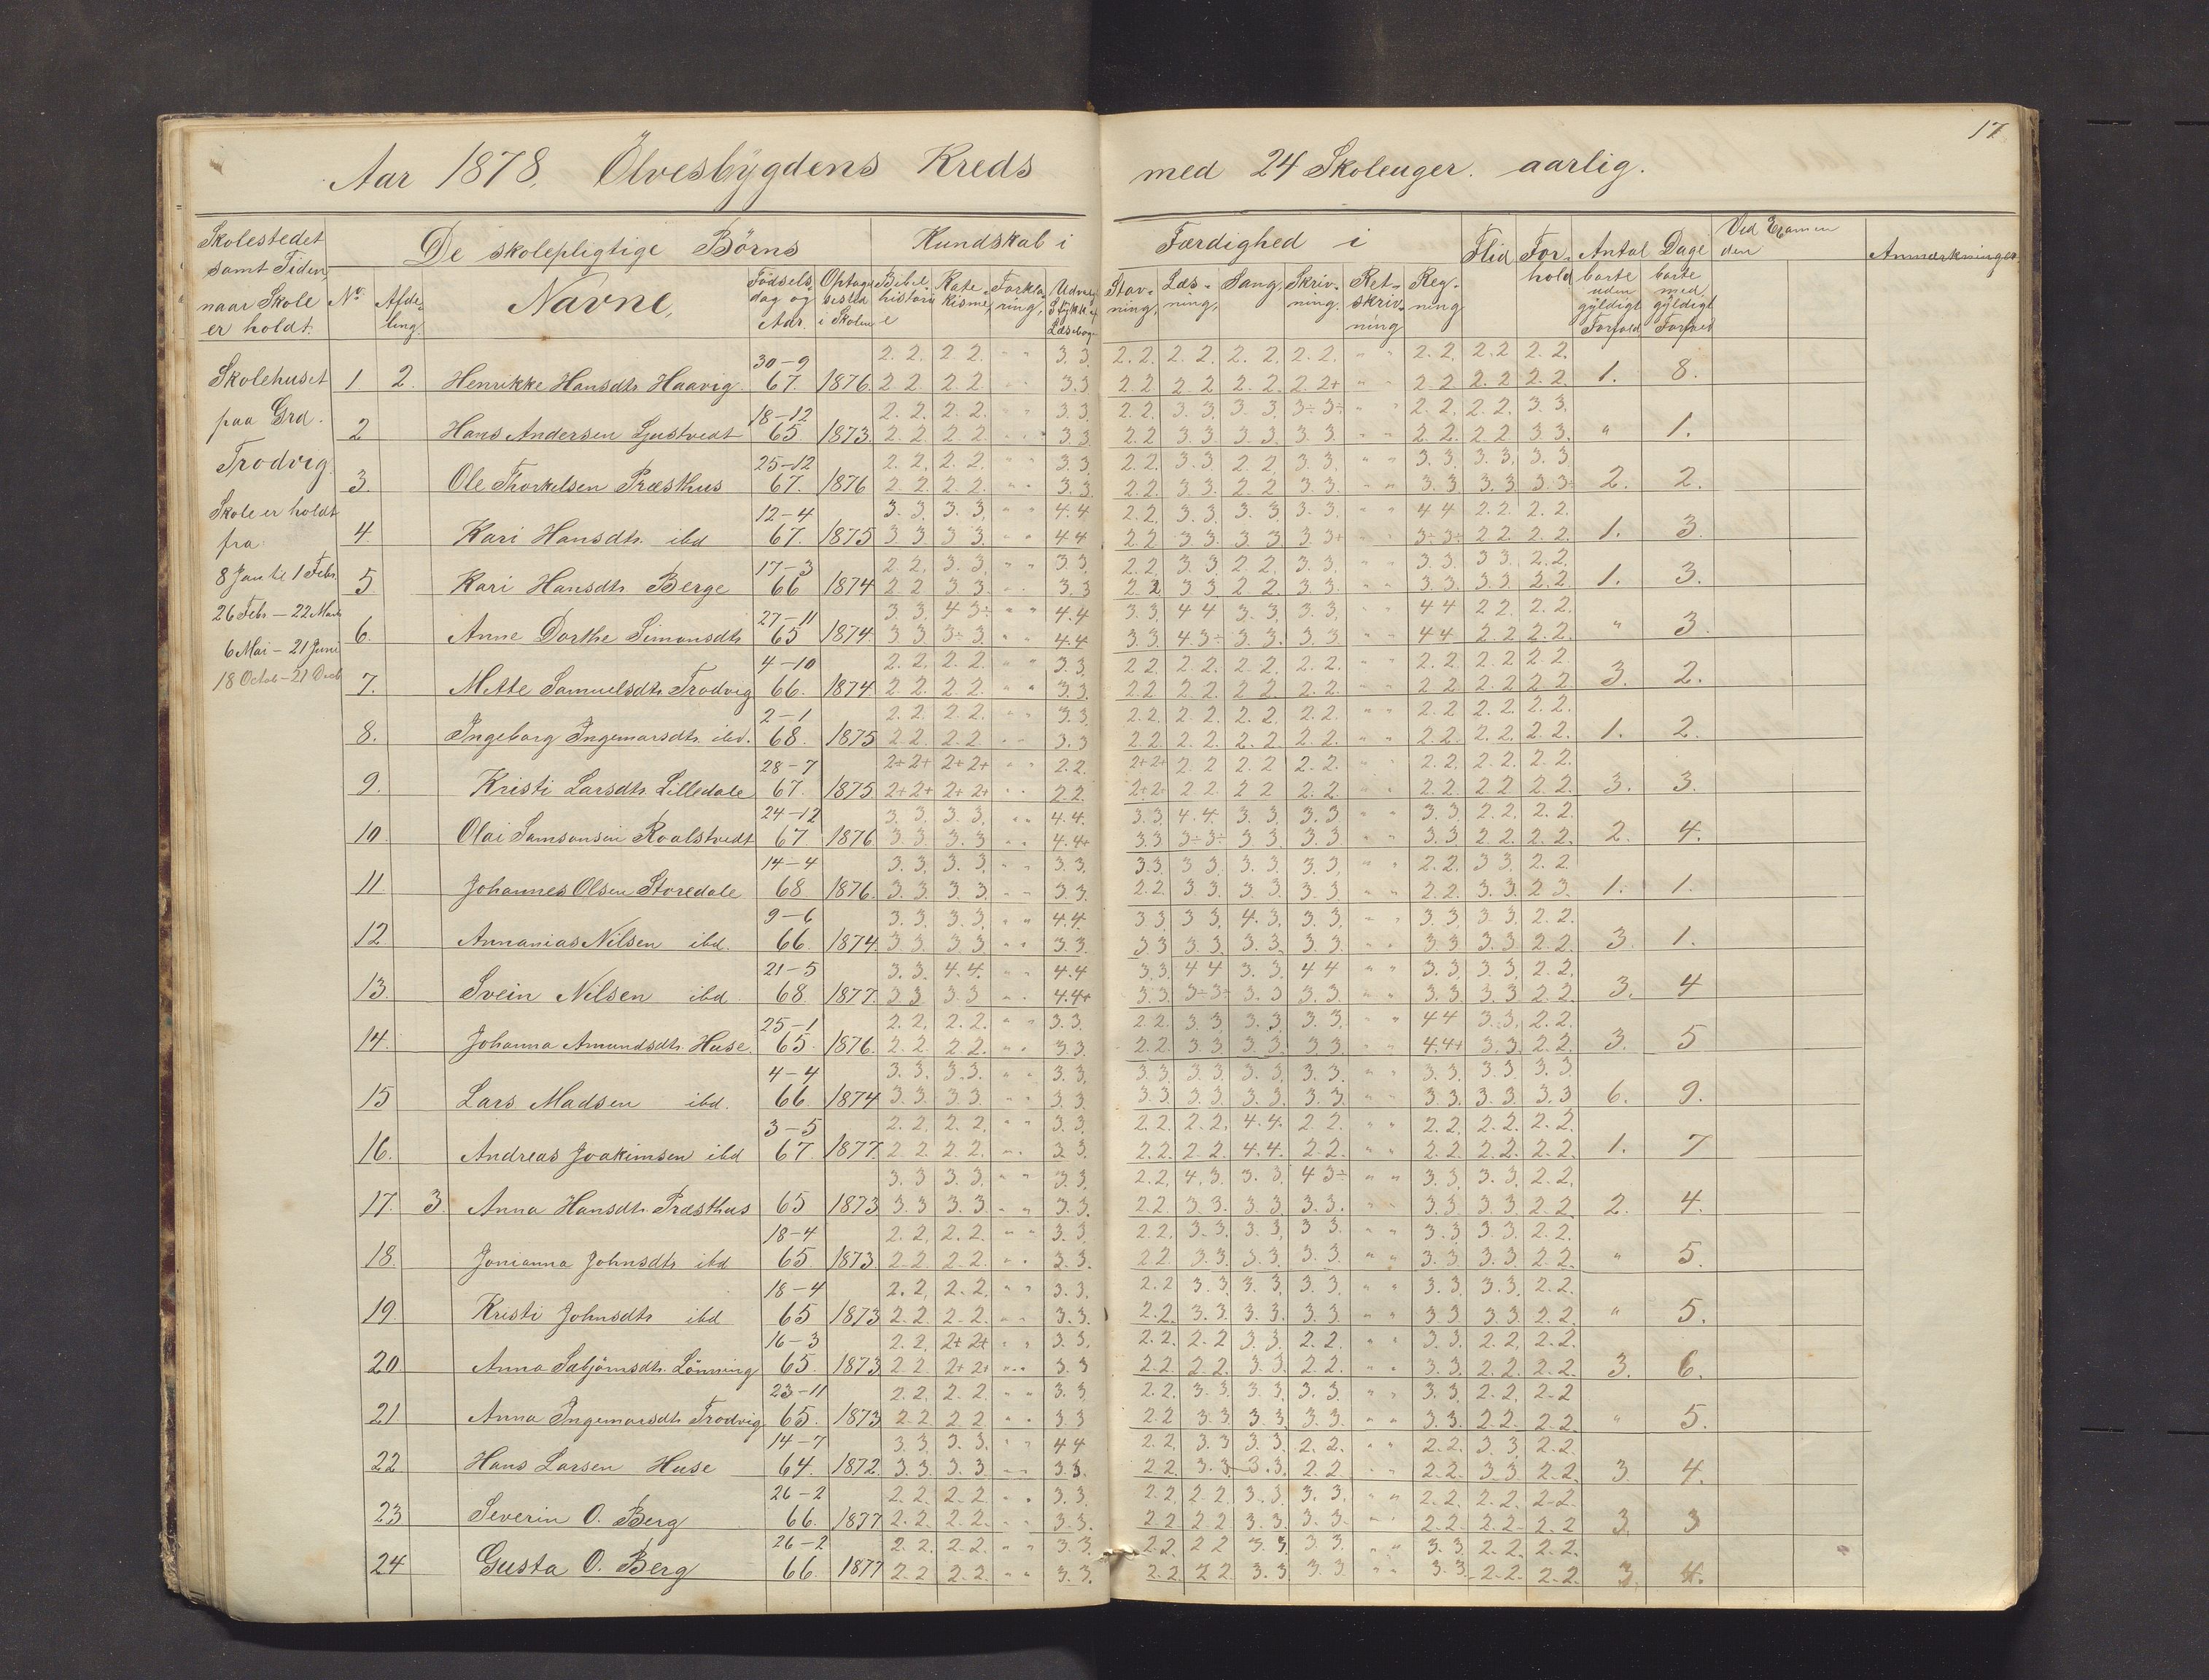 17
Aar 1878. Ölvesbygdens Kreds med 24 Skoleuger aarlig.
Skolestedet samt Tiden, naar Skole er holdt.
De skolepligtige Börns
Kundskab i
Færdighed i
Flid
For-hold
Antal Dage
Ved Examen den
Anmærkninger
No. Afde-ling. Navne, Födsels-dag og Aar. Optagelsested i Skolen Bibelhistorie Kate-kisme, Forkla-ring, Udvalgte Stykker af Læsebogen
Stav-ning, Læs-ning, Sang, Skriv-ning. Ret-skriv-ning Reg-ning
borte uden gyldigt Forfald borte med gyldigt Forfald
Skolehuset
paa Grd.
Trodvig.
Skole er holdt
fra
8 Jan til 1 Febr.
26 Febr. — 22 Marts
6 Mai — 21 Juni
18 Octob — 21 Decb
2. 2. 2 2. " " 3. 3. 2. 2. 2. 2. 2. 2. 2. 2. " " 2. 2. 2. 2 2. 2.
1 2. Henrikke Hansdtr. Haavig 30-9 67. 1876. 2 2. 2 2. " " 3.3 2 2 2 2 2. 2. 2. 2+ " " 2 2 2. 2 2. 2. 1. 8.
2. 2. 2. 2. " " 3. 3. 2. 2. 3. 3. 3. 3. 3÷ 3÷ " " 2. 2. 2. 2. 3. 3.
2 Hans Andersen Gjustvedt 18-12 65. 1873. 2. 2. 2 2 " " 3. 3. 2 2 3 3. 3. 3. 3. 3. " " 2. 2. 2 2 3 3. " 1.
2. 2. 2. 2. " " 3. 3. 2. 2. 3. 3. 2. 2. 3. 3. " " 3. 3. 3. 3. 3. 3.
3. Ole Thorkelsen Præsthus 25-12 67. 1876 2. 2. 2. 2. " " 3. 3. 2.2 3. 3. 2 2 3. 3. " " 3. 3 3.3 3.3 2. 2.
3. 3. 3. 3. " " 4.4. 2. 2. 3. 3. 3. 3. 3. 3. " " 4 4 2. 2. 2. 2.
4. Kari Hansdtr. ibd 12-4 67. 1875 3 3. 3 3. " " 4 4 2.2 3. 3. 3 3 3 3+ " " 3÷ 3÷ 2 2 2. 2. 1. 3.
2. 2. 3. 3. " " 3. 3. 2. 2. 3. 3. 2. 2. 3. 3. " " 3. 3. 3 3. 2. 2.
5 Kari Hansdtr. Berge 17-3 66 1874 2 2 3 3. " " 3. 3 2 2 3 3 2 2. 3 3. " " 3. 3. 3 3. 2. 2. 1. 3.
3. 3. 4 3÷ " " 4.4 3. 3. 4 4 3. 3. 3. 3. " " 4 4 2 2. 2. 2.
6. Anne Dorthe Simonsdtr. 27-11 65 1874. 3 3 3÷ 3. " " 4.4 3. 3. 4 3÷ 3. 3. 3. 3 " " 4 4 2. 2 2. 2. " 3.
2. 2. 2. 2. " " 3 3 2 2. 2. 2. 2. 2. 2. 2. " " 2. 2. 2. 2 2. 2.
7. Mette Samuelsdtr. Trodvig 4-10 66. 1874. 2 2. 2. 2. " " 3. 3. 2.2 2 2. 2 2 2. 2. " " 2 2 2. 2 2. 2. 3. 2.
2. 2. 2. 2. " " 3. 3. 2. 2. 2. 2. 2. 2. 2. 2. " " 2. 2 2. 2. 2. 2.
8. Ingeborg Ingemarsdtr. ibd. 2-1 68. 1875 2 2. 2. 2. " " 3. 3 2. 2. 2. 2. 2. 2 2. 2. " " 2. 2. 2. 2. 2. 2. 1. 2.
2+ 2+ 2+ 2+ " " 2.2. 2+ 2+ 2. 2 2. 2 2. 2. " " 2. 2. 2. 2. 2. 2.
9. Kristi Larsdtr. Lilledale 28-7 67. 1875 2+ 2+ 2+ 2+ " " 2.2. 2+ 2+ 2 2. 2 2 2. 2 " " 2. 2. 2 2 2. 2. 3. 3.
3. 3. 3. 3. " " 4. 4. 3. 3 4. 4. 3. 3. 3. 3 " " 3. 3. 2. 2. 2. 2.
10 Olai Samsonsen Roalstvedt 24-12 67 1876 3. 3. 3. 3 " " 4.4+ 3 3 3÷ 3÷ 3 3. 3. 3 " " 3. 3 2. 2 2. 2. 2. 4.
3. 3. 3. 3. " " 3 3. 3.3 3 3 3. 3. 3. 3. " " 2. 2. 3 3. 2. 2
11 Johannes Olsen Storedale 14-4 68 1876. 3. 3. 3 3. " " 3. 3. 2.2. 3 3. 3 3 3 3. " " 2 2. 3. 3. 2 3. 1. 1.
3. 3. 3. 3. " " 4.4. 3 3. 3 3. 4. 3. 3. 3. " " 3 3 3 3. 2. 2.
12 Annanias Nilsen ibd. 9-6 66. 1874. 3 3. 3 3. " " 3. 3. 3 3 3. 3. 3. 3. 3. 3. " " 3 3 3. 3 2. 2. 3. 1.
3. 3. 4. 4. " " 4. 4 3. 3. 4 4 3. 3. 4 4 " " 3. 3. 3. 3. 2. 2.
13. Svein Nilsen ibd 21-5 68 1877. 3 3 3 3 " " 4.4+ 3 3. 3÷ 3÷ 3. 3 3 3. " " 3. 3. 3. 3 2. 2. 3. 4
2. 2. 2. 2. " " 3. 3. 2. 2. 3. 3 3. 3 3. 3. " " 4 4 3. 3. 2. 2.
14. Johanna Amundsdtr. Huse. 25-1 65. 1876. 2. 2. 2 2. " " 3 3. 2. 2. 3. 3. 3. 3. 3 3. " " 4.4+ 3. 3. 2. 2. 3. 5
3. 3. 3. 3. " " 3. 3. 3. 3. 3. 3. 3. 3. 3. 3. " " 3. 3. 3. 3. 3. 3
15 Lars Madsen ibd. 4-4 66 1874 3 3. 3 3. " " 3 3. 3 3 3. 3. 3. 3. 3. 3. " " 3 3. 3. 3. 3. 3 6. 9.
2. 2. 2. 2. " " 3. 3. 2. 2. 2. 2. 4.4. 2. 2. " " 2. 2. 2. 2. 2. 2.
16. Andreas Joakimsen ibd 3-5 67. 1877. 2 2. 2. 2. " " 3 3. 2. 2. 2 2. 4. 4. 2. 2. " " 2. 2. 2. 2. 2. 2. 1. 7
3. 3 3. 3. " " 3. 3. 2. 2. 4. 3. 3. 3. 4 3÷ " " 3. 3. 3. 3. 2. 2.
17. 3 Anna Hansdtr. Præsthus 65 1873 3 3 3. 3. " " 3. 3. 2 2. 3 3. 3. 3 3. 3. " " 3 3. 3. 3. 2. 2. 2. 4.
2. 2. 2. 2. " " 3. 3. 2. 2. 3. 3. 3. 3. 3 3. " " 3. 3 3 3. 2. 2.
18. Jonianna Johnsdtr. ibd 18-4 65 1873. 2 2. 2. 2. " " 3. 3. 2 2. 3. 3. 3. 3. 3. 3. " " 3. 3. 3. 3. 2. 2. " 5.
2. 2, 2. 2. " " 3. 3. 2. 2 3. 3. 3. 3. 3. 3. " " 3. 3. 3. 3. 2. 2.
19. Kristi Johnsdtr ibd 18-4 65 1873 2 2. 2. 2. " " 3. 3. 2. 2. 3. 3. 3. 3. 3. 3 " " 3 3 3 3. 2. 2. " 5.
2. 2. 2+ 2+ " " 3. 3. 2. 2. 2. 2 3. 3. 2. 2. " " 3. 3. 2. 2. 2. 2.
20 Anna Sæbjörnsdtr. Lönning 16-3 65. 1873 2 2. 2+ 2+ " " 3. 3 2. 2. 2. 2. 3. 3. 2. 2. " " 3. 3. 2. 2. 2. 2. 3. 6.
2. 2. 2. 2 " " 3. 3. 2. 2. 3. 3. 3. 3. 3. 3. " " 3. 3. 2. 2. 2. 2
21 Anna Ingemarsdtr. Trodvig 23-11 65. 1873 2. 2. 2 2 " " 3 3 2 2 3 3. 3. 3. 3. 3. " " 3. 3. 2. 2. 2. 2. " 5.
3. 3. 3. 3. " " 4 4 2. 2. 3. 3. 3. 3. 2. 2. " " 2. 2. 3. 3. 2. 2.
22. Hans Larsen Huse 14-7 64. 1872. 3. 3. 3. 3. " " 3. 3. 2 2. 3. 3. 3. 3. 2 2. " " 2. 2. 3 3. 2. 2 3. 4.
2. 2. 2. 2. " " 3. 3. 2. 2. 2 2. 3. 3. 3. 3. " " 2. 2. 2. 2. 2. 2.
23 Severin O. Berg 26-2 66. 1877 2. 2. 2. 2. " " 3. 3. 2 2 2 2 3. 3. 3. 3. " " 2. 2. 2. 2. 2. 2 3. 3
2. 2. 2. 2. " " 3. 3. 2. 2. 2 2 3. 3. 3. 3. " " 3. 3. 2. 2. 2. 2.
24 Gusta O. Berg 26-2 66. 1877 2. 2. 2. 2. " " 3. 3. 2. 2. 2 2. 3. 3. 3. 3. " " 3. 3. 2. 2. 2. 2. 3. 4.